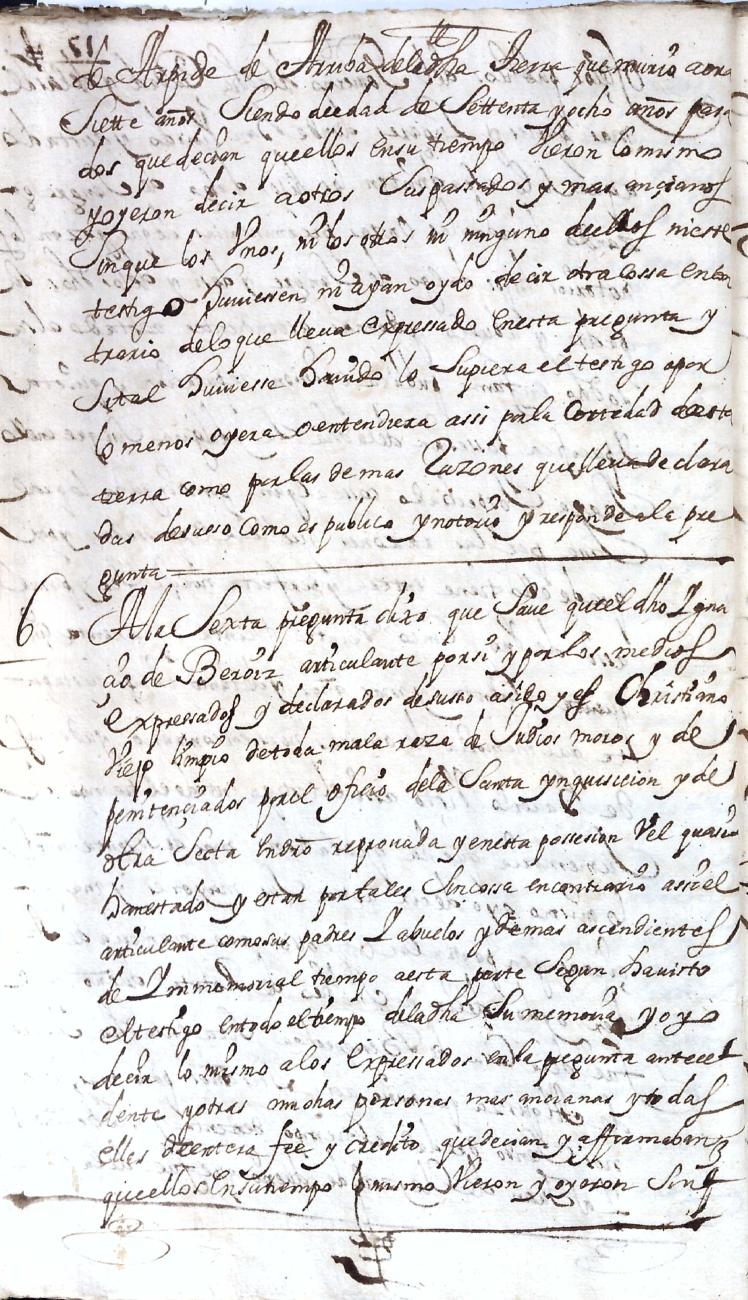 de Arpide de Arriba de la dha tierra que murio aora
Siette años Siendo de edad de Settenta y ocho años pasa
dos que decian que ellos en su tiempo Vieron lo mismo
y oyeron decir a otros Sus pasados y mas ançianos
Sin que los Unos, ni los otros ni ninguno de ellos ni este
testigo huviessen ni ayan oydo decir otra cossa en con
trario de lo que lleva expressado en esta pregunta y
Si tal huviesse havido lo Supiera el testigo o por
lo menos oyera o entendiera assi por la Cortedad de esta
tierra como por las demas Razones que lleva declara
das desusso Como es publico y notorio y responde a la pre
gunta
6 A la Sexta pregunta dixo que Save que el dho Igna
cio de Beroiz articulante por si y por los medios
expressados y declarados desusso a sido y es Christiano
Viejo limpio de toda mala raza de Judios moros y de
penitençiados por el ofiçio de la Santa ynquisicion y de
otra Secta en dro reprovada y en esta possesion Vel quasi
han estado y estan por tales Sin cossa en contrario assi el
articulante como sus padres Y abuelos y demas asçendientes
de Ynmemorial tiempo a esta parte Segun ha visto
el testigo en todo el tiempo de la dha Su memoria y oyo
decir lo mismo a los expressados en la pregunta antece
dente y otras muchas personas mas ancianas y todas
ellas de entera fee y credito que decian y affirmaban
que ellos en su tiempo lo mismo Vieron y oyeron Sin q